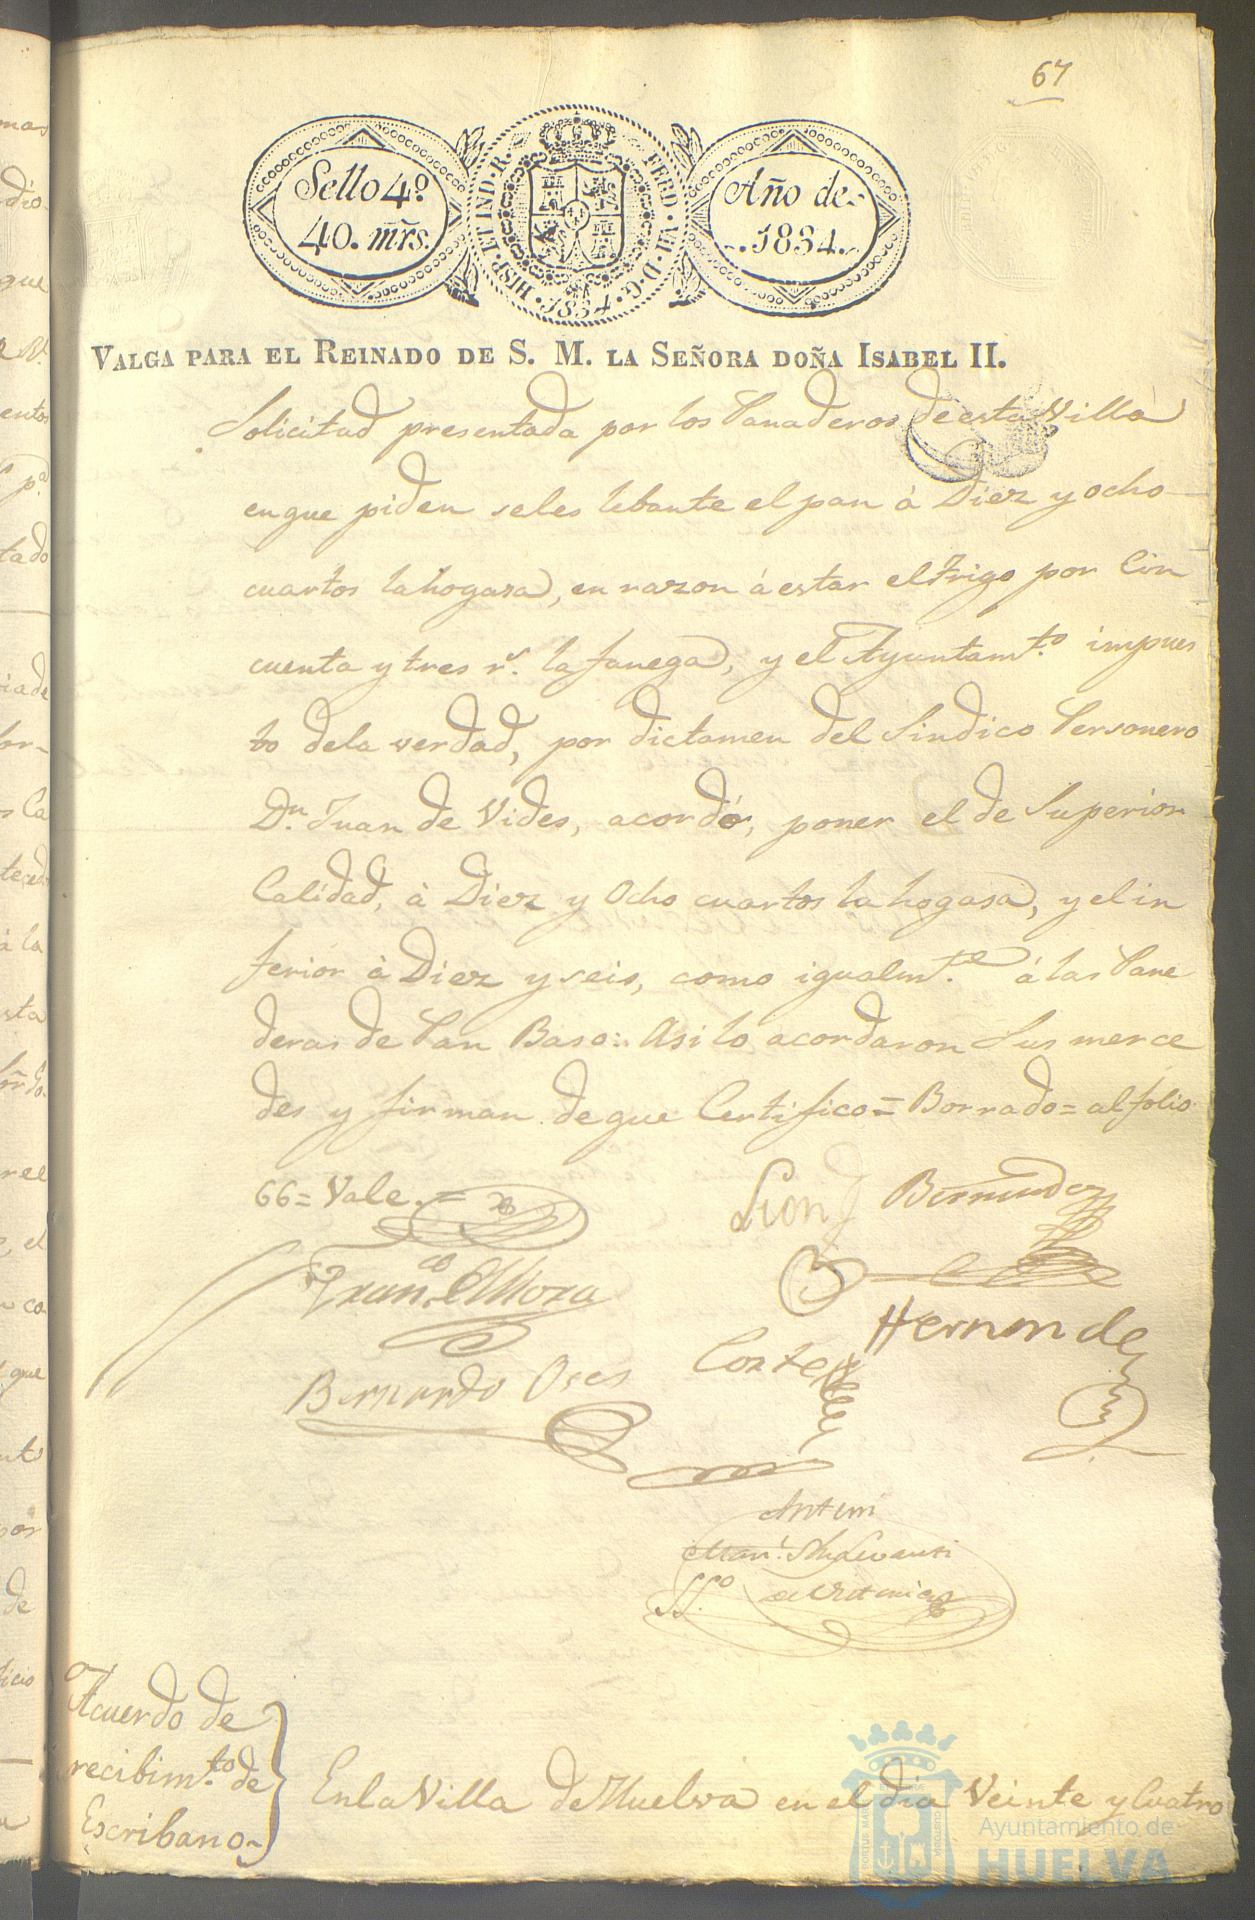 67
Sello 4º
40. mrs.
HISP. ET IND. R.
FERD. VII. D. G.
1834.
Año de
1834.
VALGA PARA EL REINADO DE S. M. LA SEÑORA DOÑA ISABEL II.
Solicitud presentada por los Panaderos de esta Villa
en que piden seles lebante el pan à Diez y ocho
cuartos la hogasa, en razon á estar el trigo por Cin
cuenta y tres rs. la fanega, y el Ayuntamto. impues
to dela verdad, por dictamen del Sindico Personero
Dn. Juan de Vides, acordó, poner el de Superior
Calidad, à Diez y Ocho cuartos la hogasa, y el in
ferior à Diez y seis, como igualmte. à las Pane
deras de Pan Baso:. Asi lo acordaron Sus merce
des y firman de que Certifico = Borrado = al folio
66 = Vale. =
Lion
Bermudez
Franco. Mora
Hernande
Cortes
Bernardo Oses
Antemi
Acuerdo de
recibimto. de
Escribano
En la Villa de Huelva en el dia Veinte y Cuatro
Ayuntamiento de
HUELVA